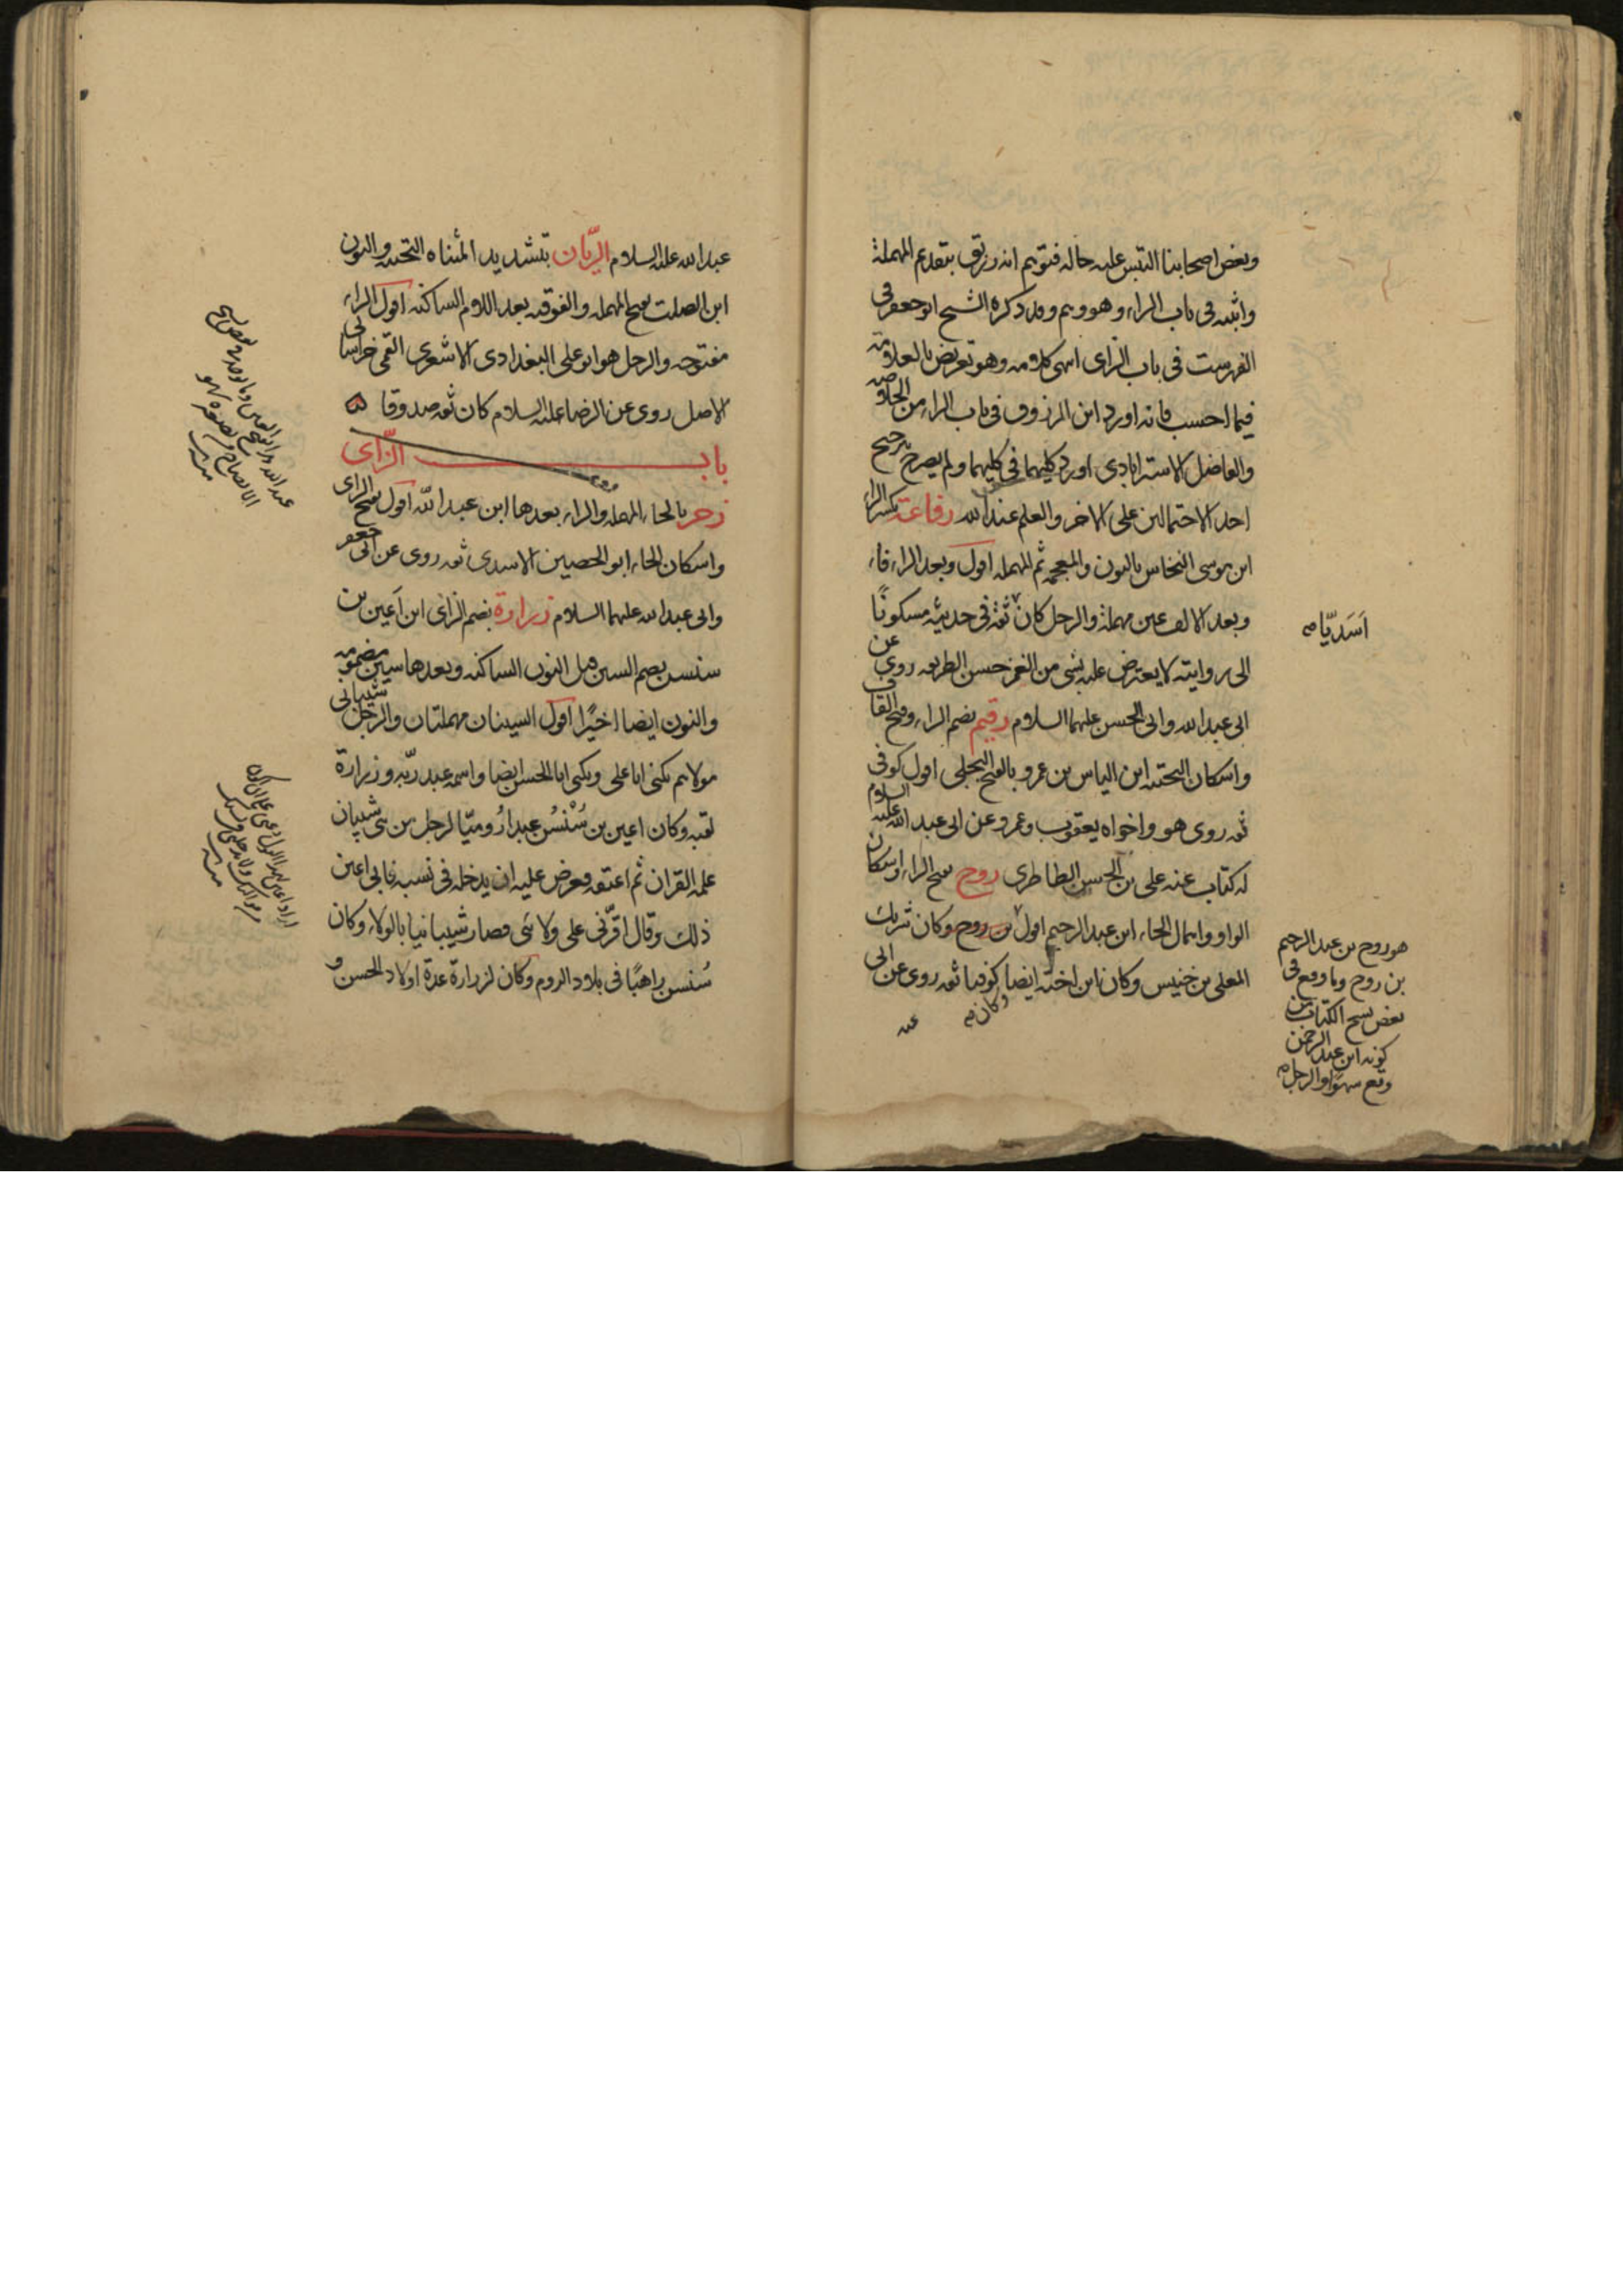 وبعض اصحابنا التبس عليه حاله فتوهم انه رزيق بتقديم المهملة
واثبته فى باب الراء وهو وهم وقد ذكره الشيخ ابو جعفر فى
الفهرست فى باب الزاى انتهى كلامه وهو تعريض بالعلامة
فيما احسب فانه اورد ابن المرزوق فى باب الراء من الخلاصه
والفاضل الاسترابادى اورد كليهما فى كليهما ولم يصرح بترجيح
احد الاحتمالين على الاخر والعلم عند الله رفاعة بكسر الراء
ابن موسى النخاس بالنون والمعجمه ثم المهمله اقول وبعد الراء فاء
وبعد الالف عين مهملة والرجل كان ثقة فى حديثه مسكونًا
الى روايته لا يعترض عليه بشى من الغمز حسن الطريقه روى عن
ابى عبد الله وابى الحسن عليهما السلام رقيم بضم الراء وفتح القاف
واسكان التحتيه ابن الياس بن عمرو بالفتح البجلى اقول كوفى
ثقه روى هو واخواه يعقوب وعمرو عن ابى عبد الله عليه السلام
له كتاب عنه على بن الحسن الطاطرى روح بفتح الراء واسكان
الواو واهمال الحاء ابن عبد الرحيم اقول بن روح وكان شريك
المعلى بن خنيس وكان ابن اخته ايضا كوفيا ثقه روى عن ابى
وكان
اَسَديّا صح
هو روح بن عبد الرحيم
بن روح وما وقع فى
بعض نسخ الكتاب من
كونه ابن عبد الرحمن
وقع سهوًا والرجل
عبد الله عليه السلام الريّان بتشديد المثناه التحتيه والنون
ابن الصلت بفتح المهمله والفوقيه بعد اللام الساكنه اقول الراء
مفتوحه والرجل هو ابو على البغدادى الاشعرى القمى خراسانى
الاصل روى عن الرضا عليه السلام كان ثقه صدوقا
باب الزّاى
زحر بالحاء المهمله والراء بعدها ابن عبد الله اقول بفتح الزاى
واسكان الحاء ابو الحصين الاسدى ثقه روى عن ابى جعفر
وابى عبد الله عليهما السلام زرارة بضم الزاى ابن اَعين بن
سنسن بضم السين قبل النون الساكنه وبعدها سين مضمومه
والنون ايضا اخيرًا اقول السينان مهملتان والرجل شيبانى
مولاهم يكنى ابا على ويكنى ابا الحسن ايضا واسمه عبد ربّه وزرارة
لقبه وكان اعين بن سُنْسُن عبدا رُوميّا لرجل من بنى شيبان
علمه القران ثم اعتقه وعرض عليه ان يدخله فى نسبه فابى اعين
ذلك وقال اقرّنى على ولائى فصار شيبانيا بالولاء وكان
سُنسن راهبًا فى بلاد الروم وكان لزرارة عدة اولاد الحسن و